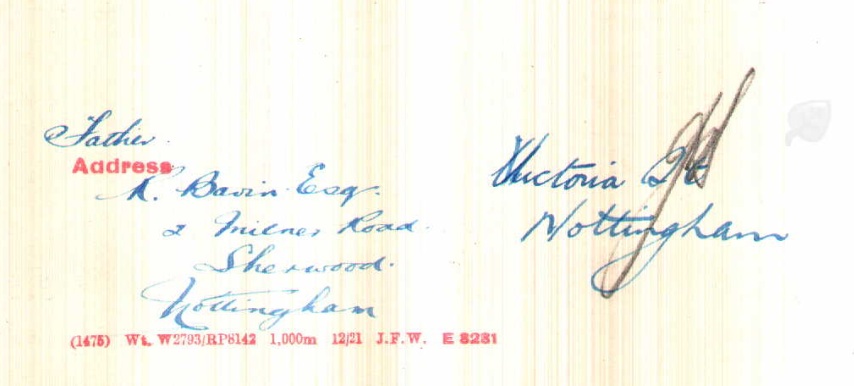 Father.
Address
R. Bavin Esq.
2 Milner Road.
Sherwood.
Nottingham
Victoria St
Nottingham
(1475) Wt. W2793/RP8142 1,000m 12/21 J.F.W. E 3231